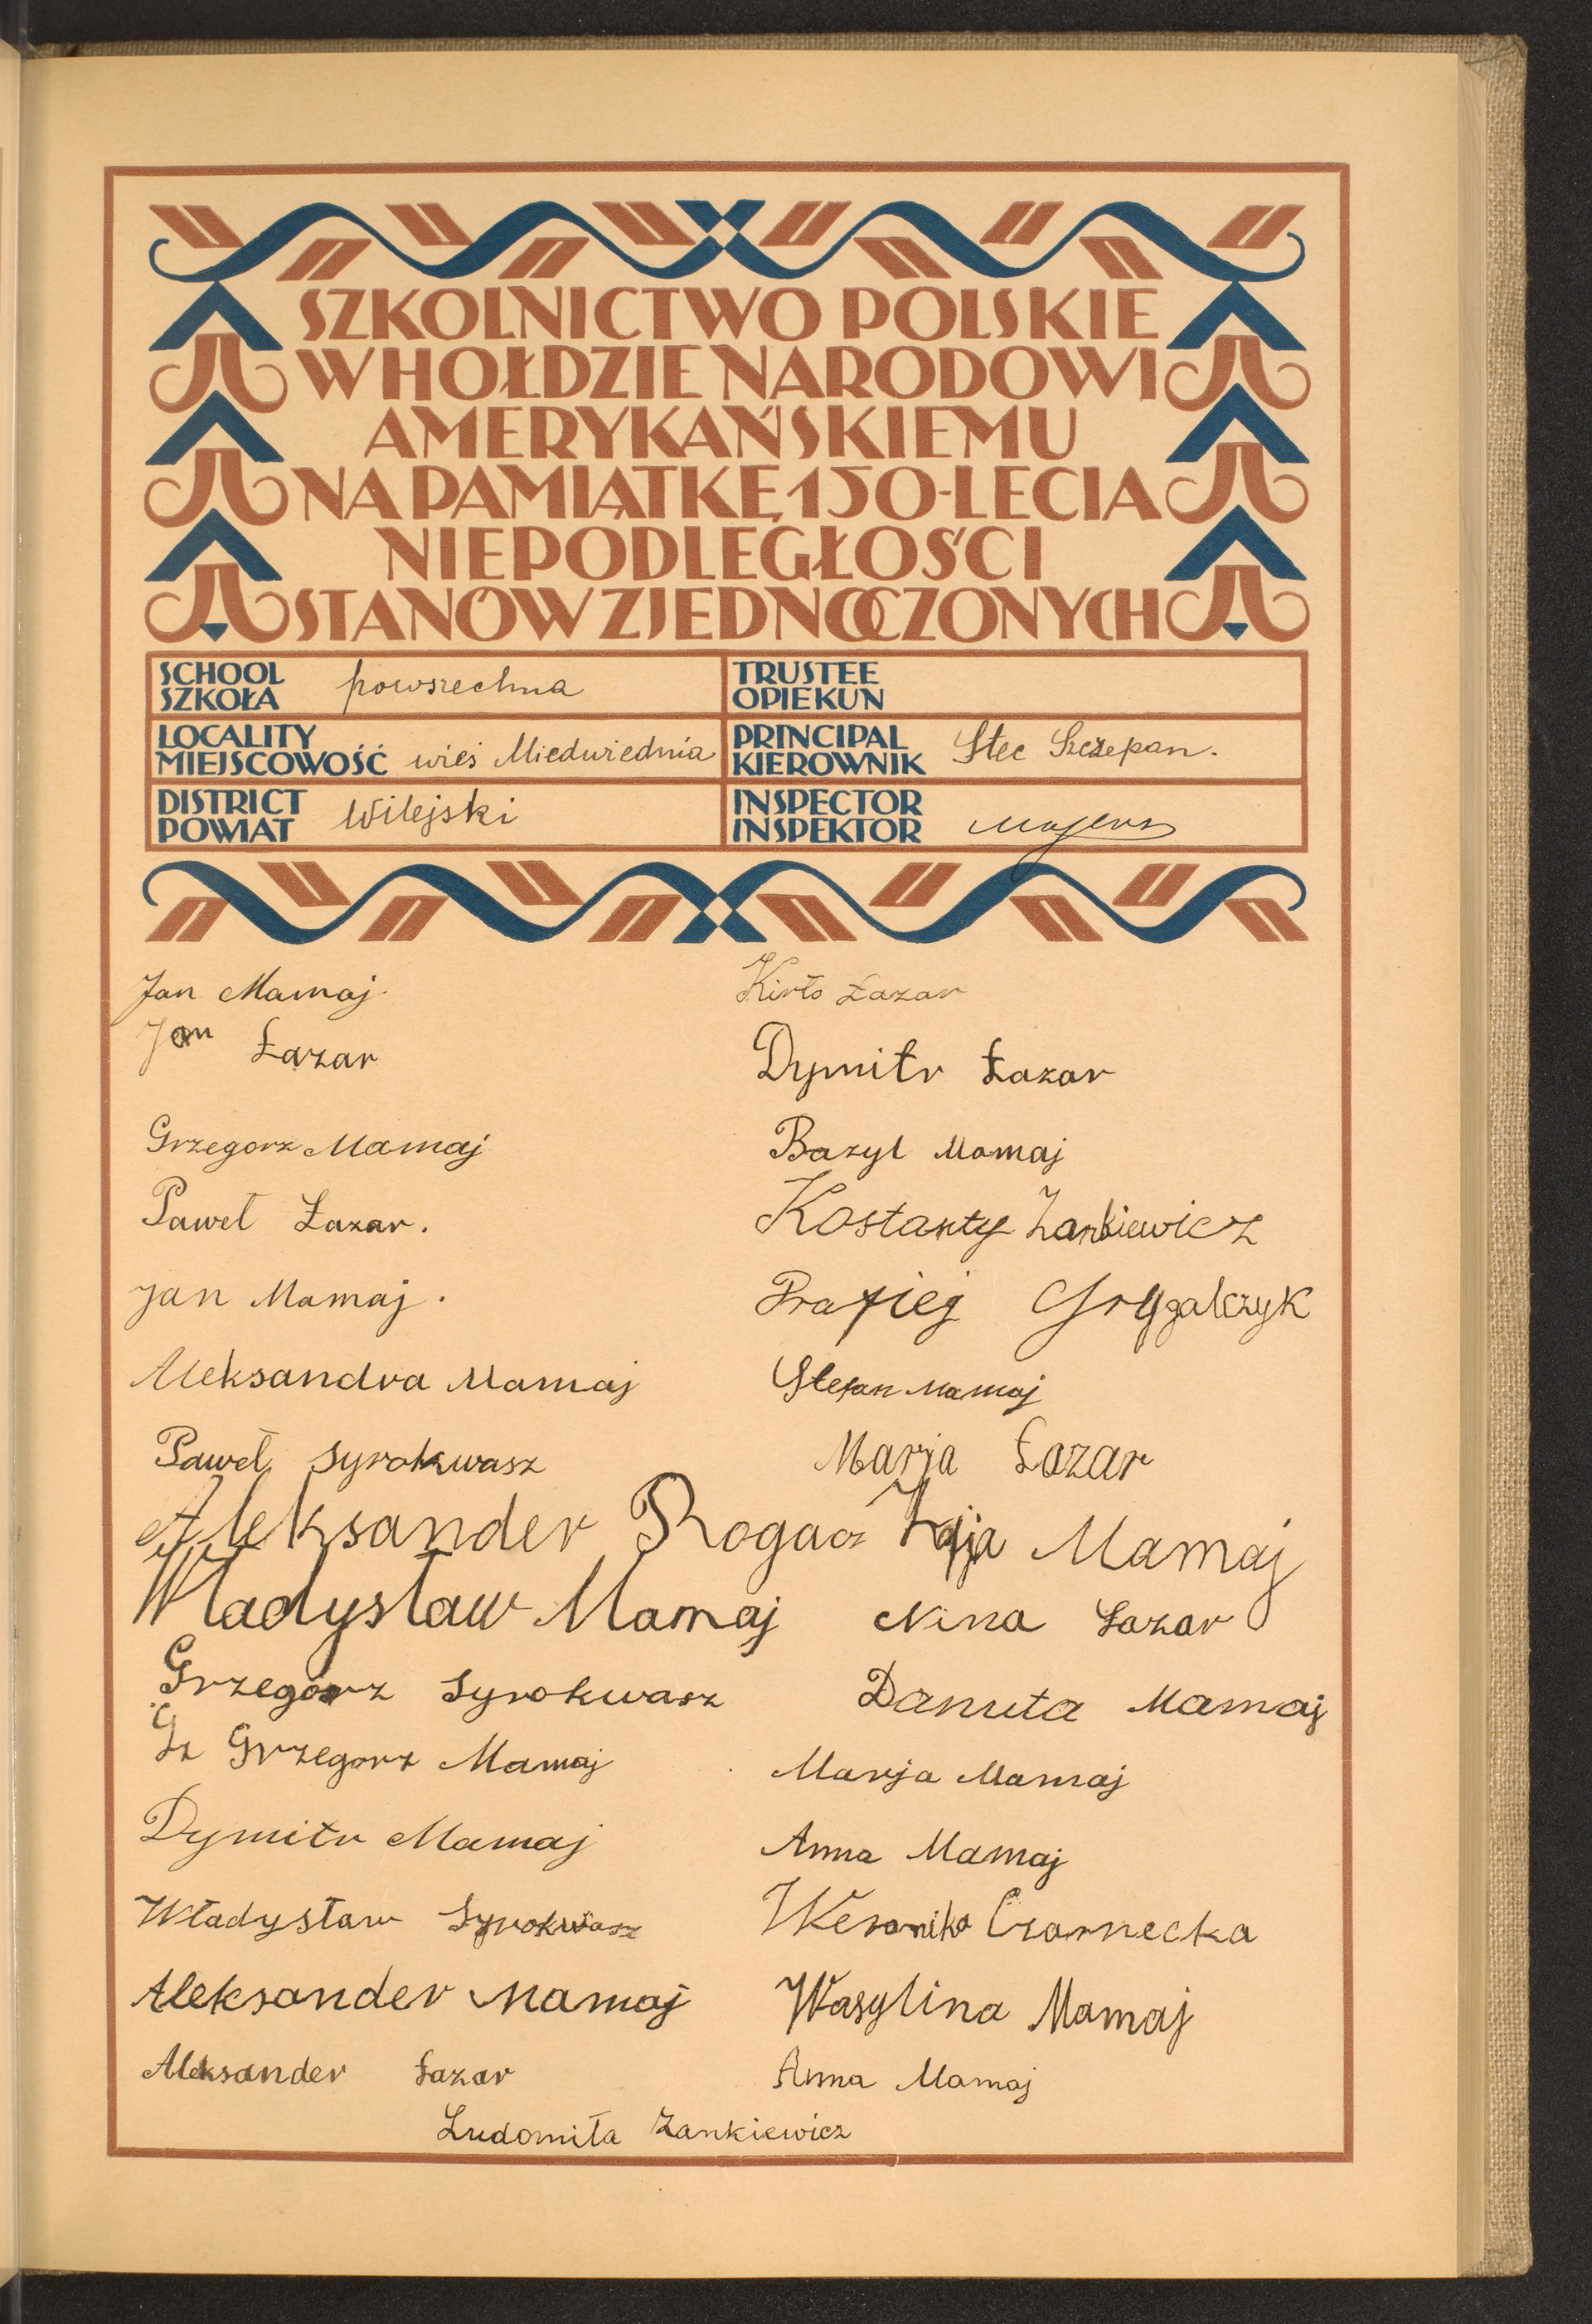 SZKOLNICTWO POLSKIE
W HOŁDZIE NARODOWI
AMERYKAŃSKIEMU
NA PAMIĄTKĘ 150-LECIA
NIEPODLEGŁOŚCI
STANÓW ZJEDNOCZONYCH
SCHOOL
SZKOŁA powszechna
TRUSTEE
OPIEKUN
LOCALITY
MIEJSCOWOŚĆ wieś Miedwiednia
PRINCIPAL
KIEROWNIK Stec Szczepan.
DISTRICT
POWIAT Wilejski
INSPECTOR
INSPEKTOR
Jan Mamaj
Jan Łazar
Grzegorz Mamaj
Paweł Łazar.
Jan Mamaj.
Aleksandra Mamaj
Paweł Syrokwasz
Aleksander Rogacz
Władysław Mamaj
Grzegorz Syrokwasz
Grzegorz Mamaj
Dymitr Mamaj
Władysław Syrokwasz
Aleksander Mamaj
Aleksander Łazar
Łazar
Dymitr Łazar
Bazyl Mamaj
Kostanty Zankiewicz
Grygalczyk
Stefan Mamaj
Marja Łazar
Mamaj
Nina Łazar
Danuta Mamaj
Marja Mamaj
Anna Mamaj
Weronika Czarnecka
Wasylina Mamaj
Anna Mamaj
Ludomiła Zankiewicz